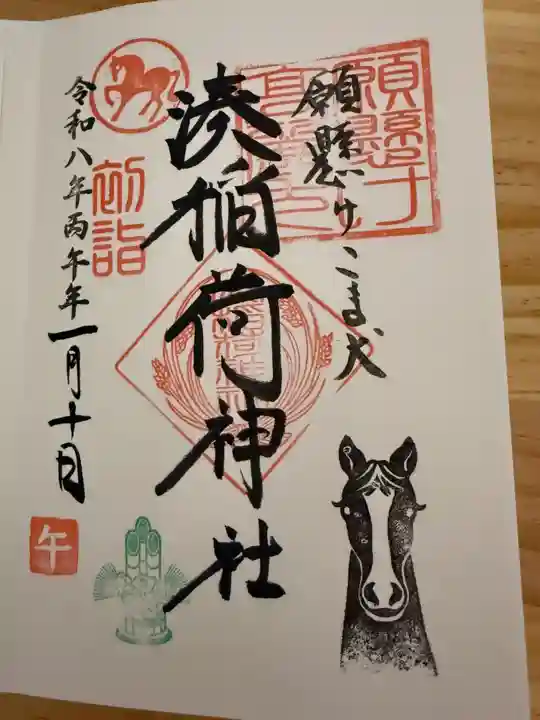 願懸けこま犬
願懸け
湊稲荷神社
初詣
令和八年丙午年一月十日
午